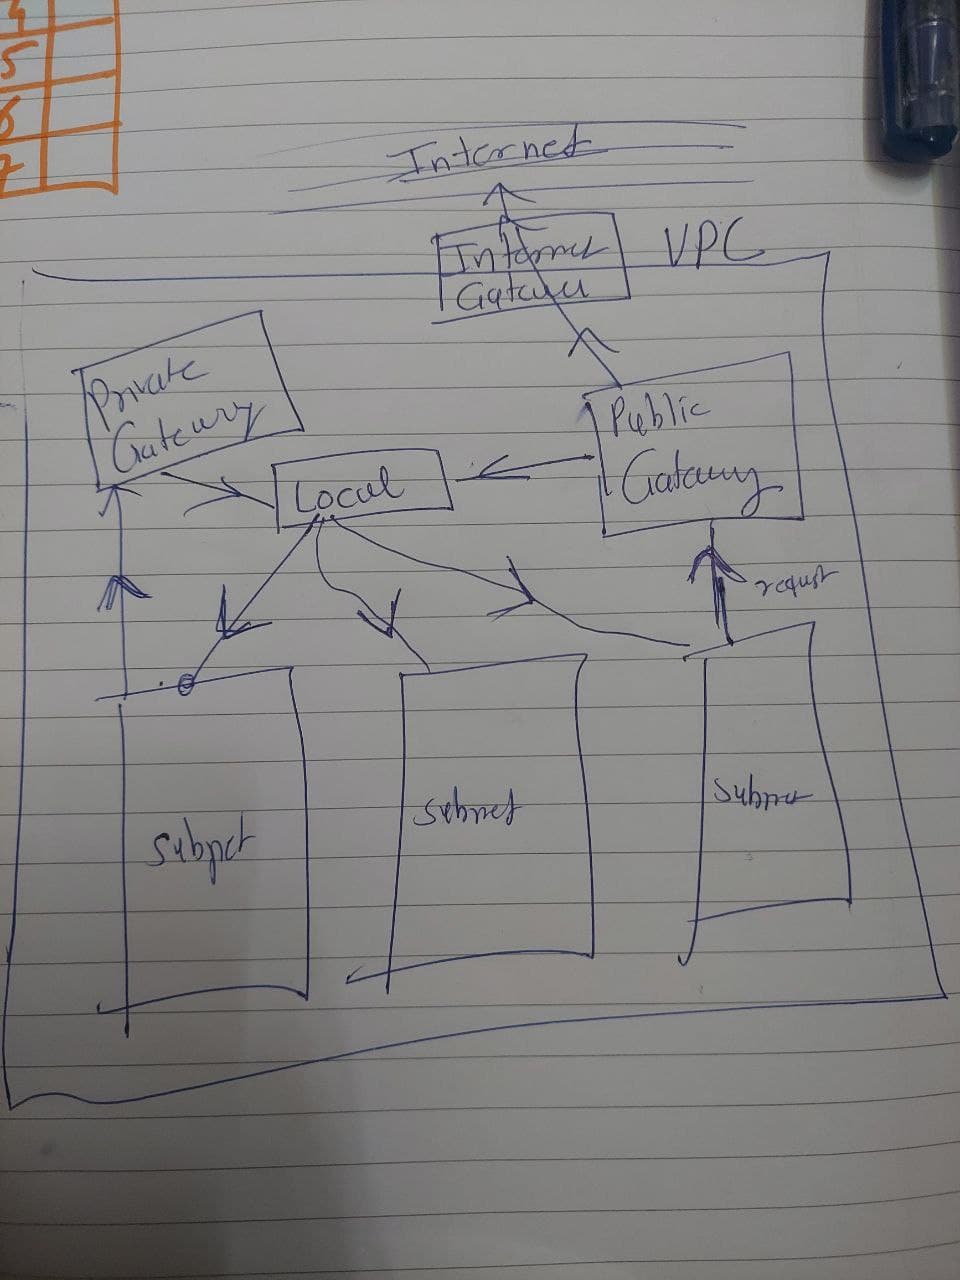 4
5
6
7
Internet
VPC
Internet
Gateway
Private
Gateway
Public
Gateway
Local
request
Subnet
Subnet
Subnet